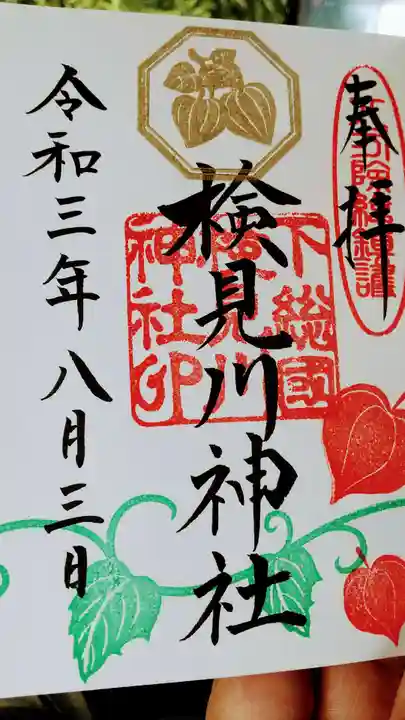 奉拝
下総國
検見川
神社印
検見川神社
令和三年八月三日